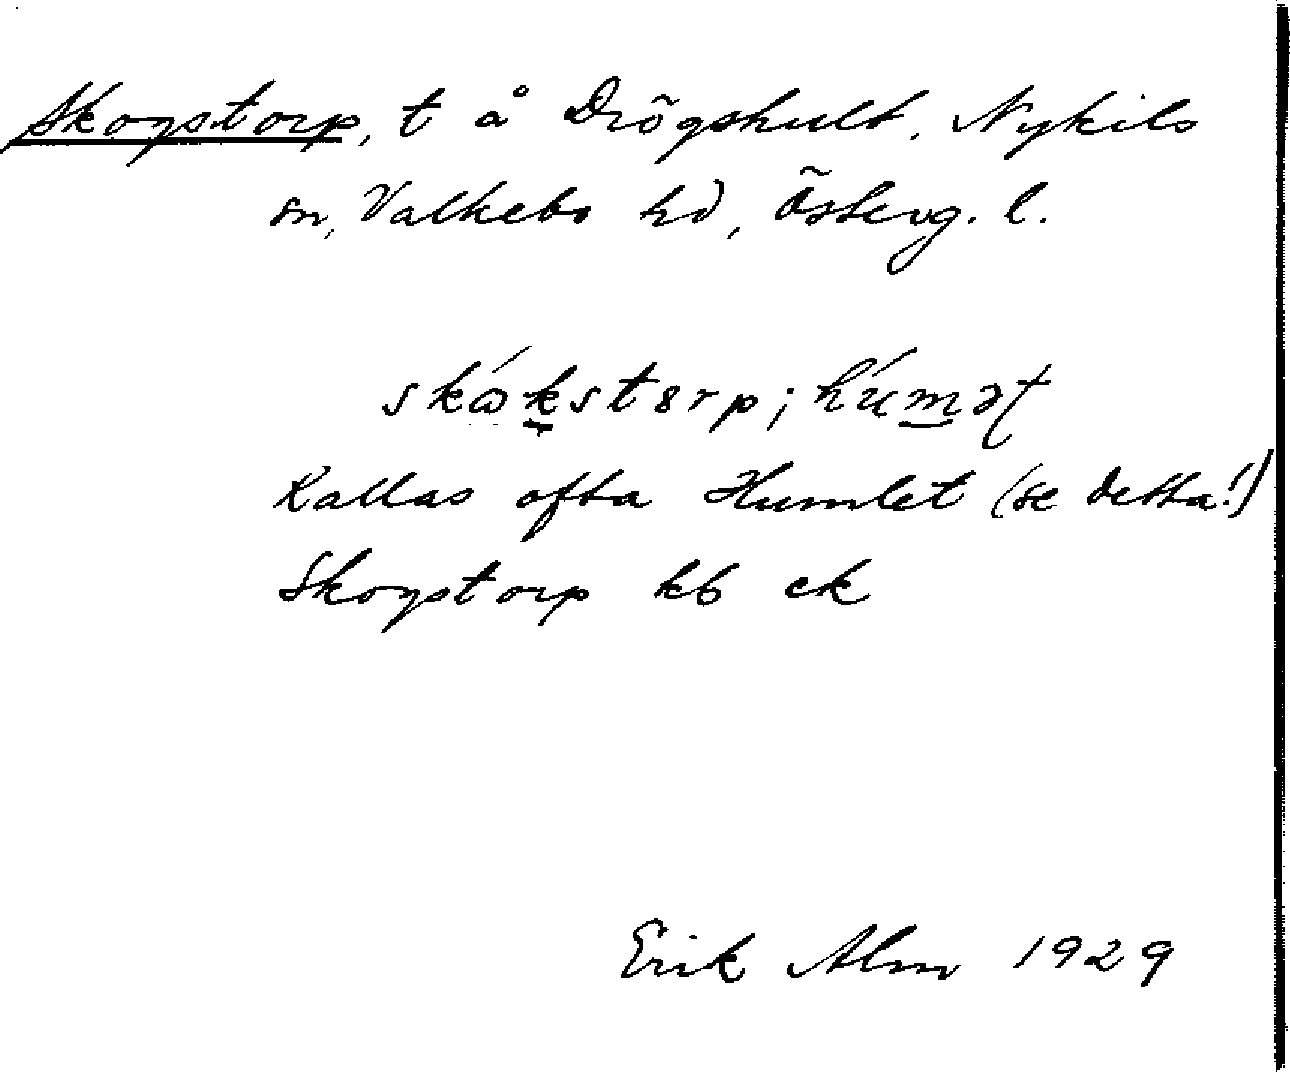 Skogstorp, t å Drögshult, Nykils
sn, Valkebo hd, Österg. l.
skɷ́kstɞrp; húmət
Kallas ofta Humlet (se detta!)
Skogstorp kb ek
Erik Alm 1929